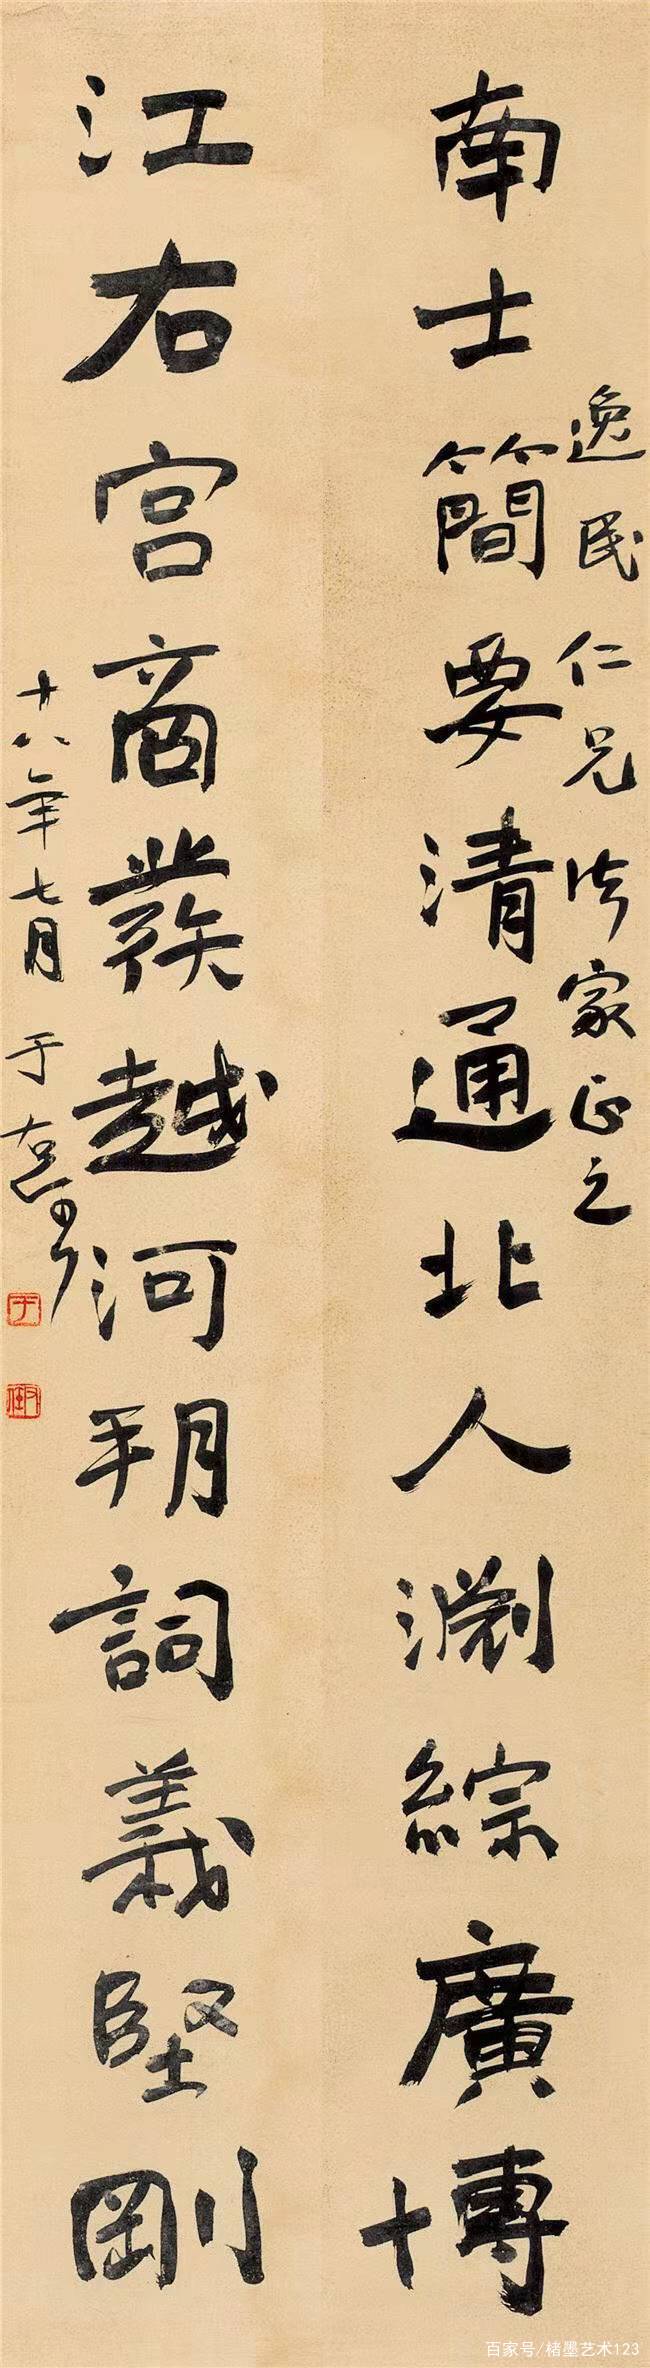 逸民仁兄法家正之
南士簡要清通北人淵綜廣博
江右宮商發越河朔詞義堅剛
十八年七月 于右任
于
右任
百家号/楮墨艺术123